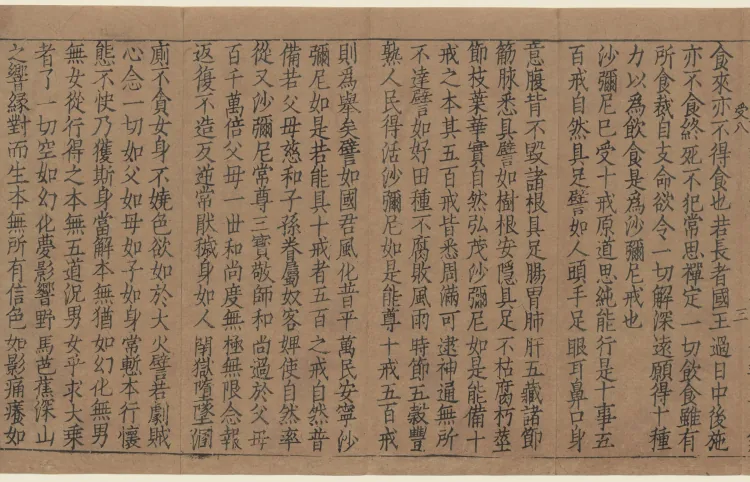 受八
三
食來亦不得食也若長者國王過日中後施
亦不食終死不犯常思禪定一切飲食雖有
所食裁自支命欲令一切解深遠願得十種
力以為飲食是為沙彌尼戒也
沙彌尼已受十戒原道思純能行是十事五
百戒自然具足譬如人頭手足眼耳鼻口身
意腹背不毀諸根具足腸胃肺肝五藏諸節
筋脉悉具譬如樹根安隱具足不枯腐朽莖
節枝葉華實自然弘茂沙彌尼如是能備十
戒之本其五百戒皆悉周滿可逮神通無所
不達譬如好田種不腐敗風雨時節五穀豐
熟人民得活沙彌尼如是能尊十戒五百戒
則為舉矣譬如國君風化昔平萬民安寧沙
彌尼如是若能具十戒者五百之戒自然普
備若父母慈和子孫眷屬奴客婢使自然率
從又沙彌尼常尊三寶敬師和尚過於父母
百千萬倍父母一世和尚度無極無限念報
返復不造反逆常猒穢身如人閇獄墮墜溷
廁不貪女身不嬈色欲如於大火譬若劇賊
心念一切如父如母如子如身常慚本行懷
態不快乃獲斯身當解本無猶如幻化無男
無女從行得之本無五道況男女乎求大乘
者了一切空如幻化夢影響野馬芭蕉深山
之響緣對而生本無所有信色如影痛癢如